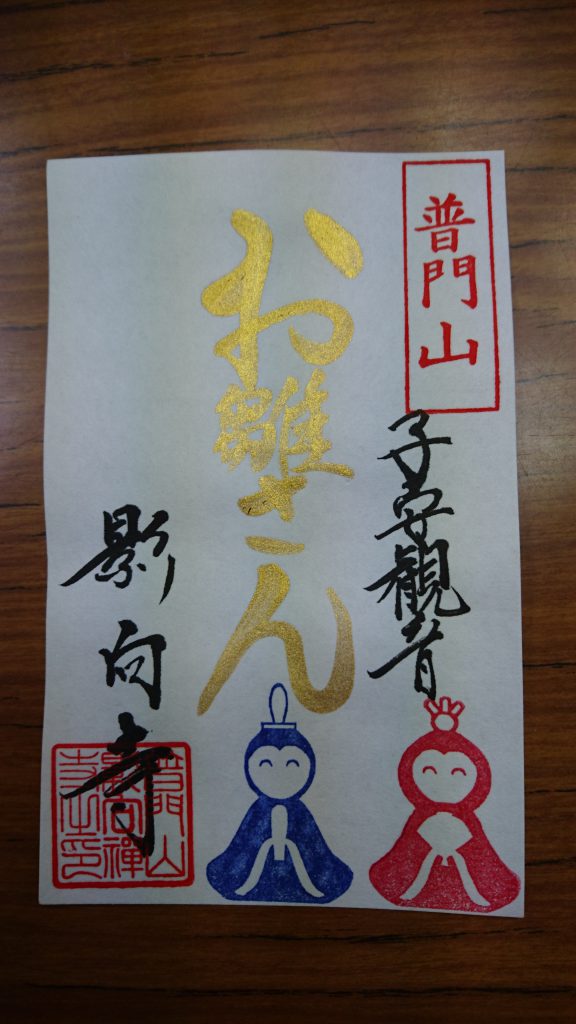 普門山
子安観音
お雛さん
影向寺
普門山
影向禅
寺之印